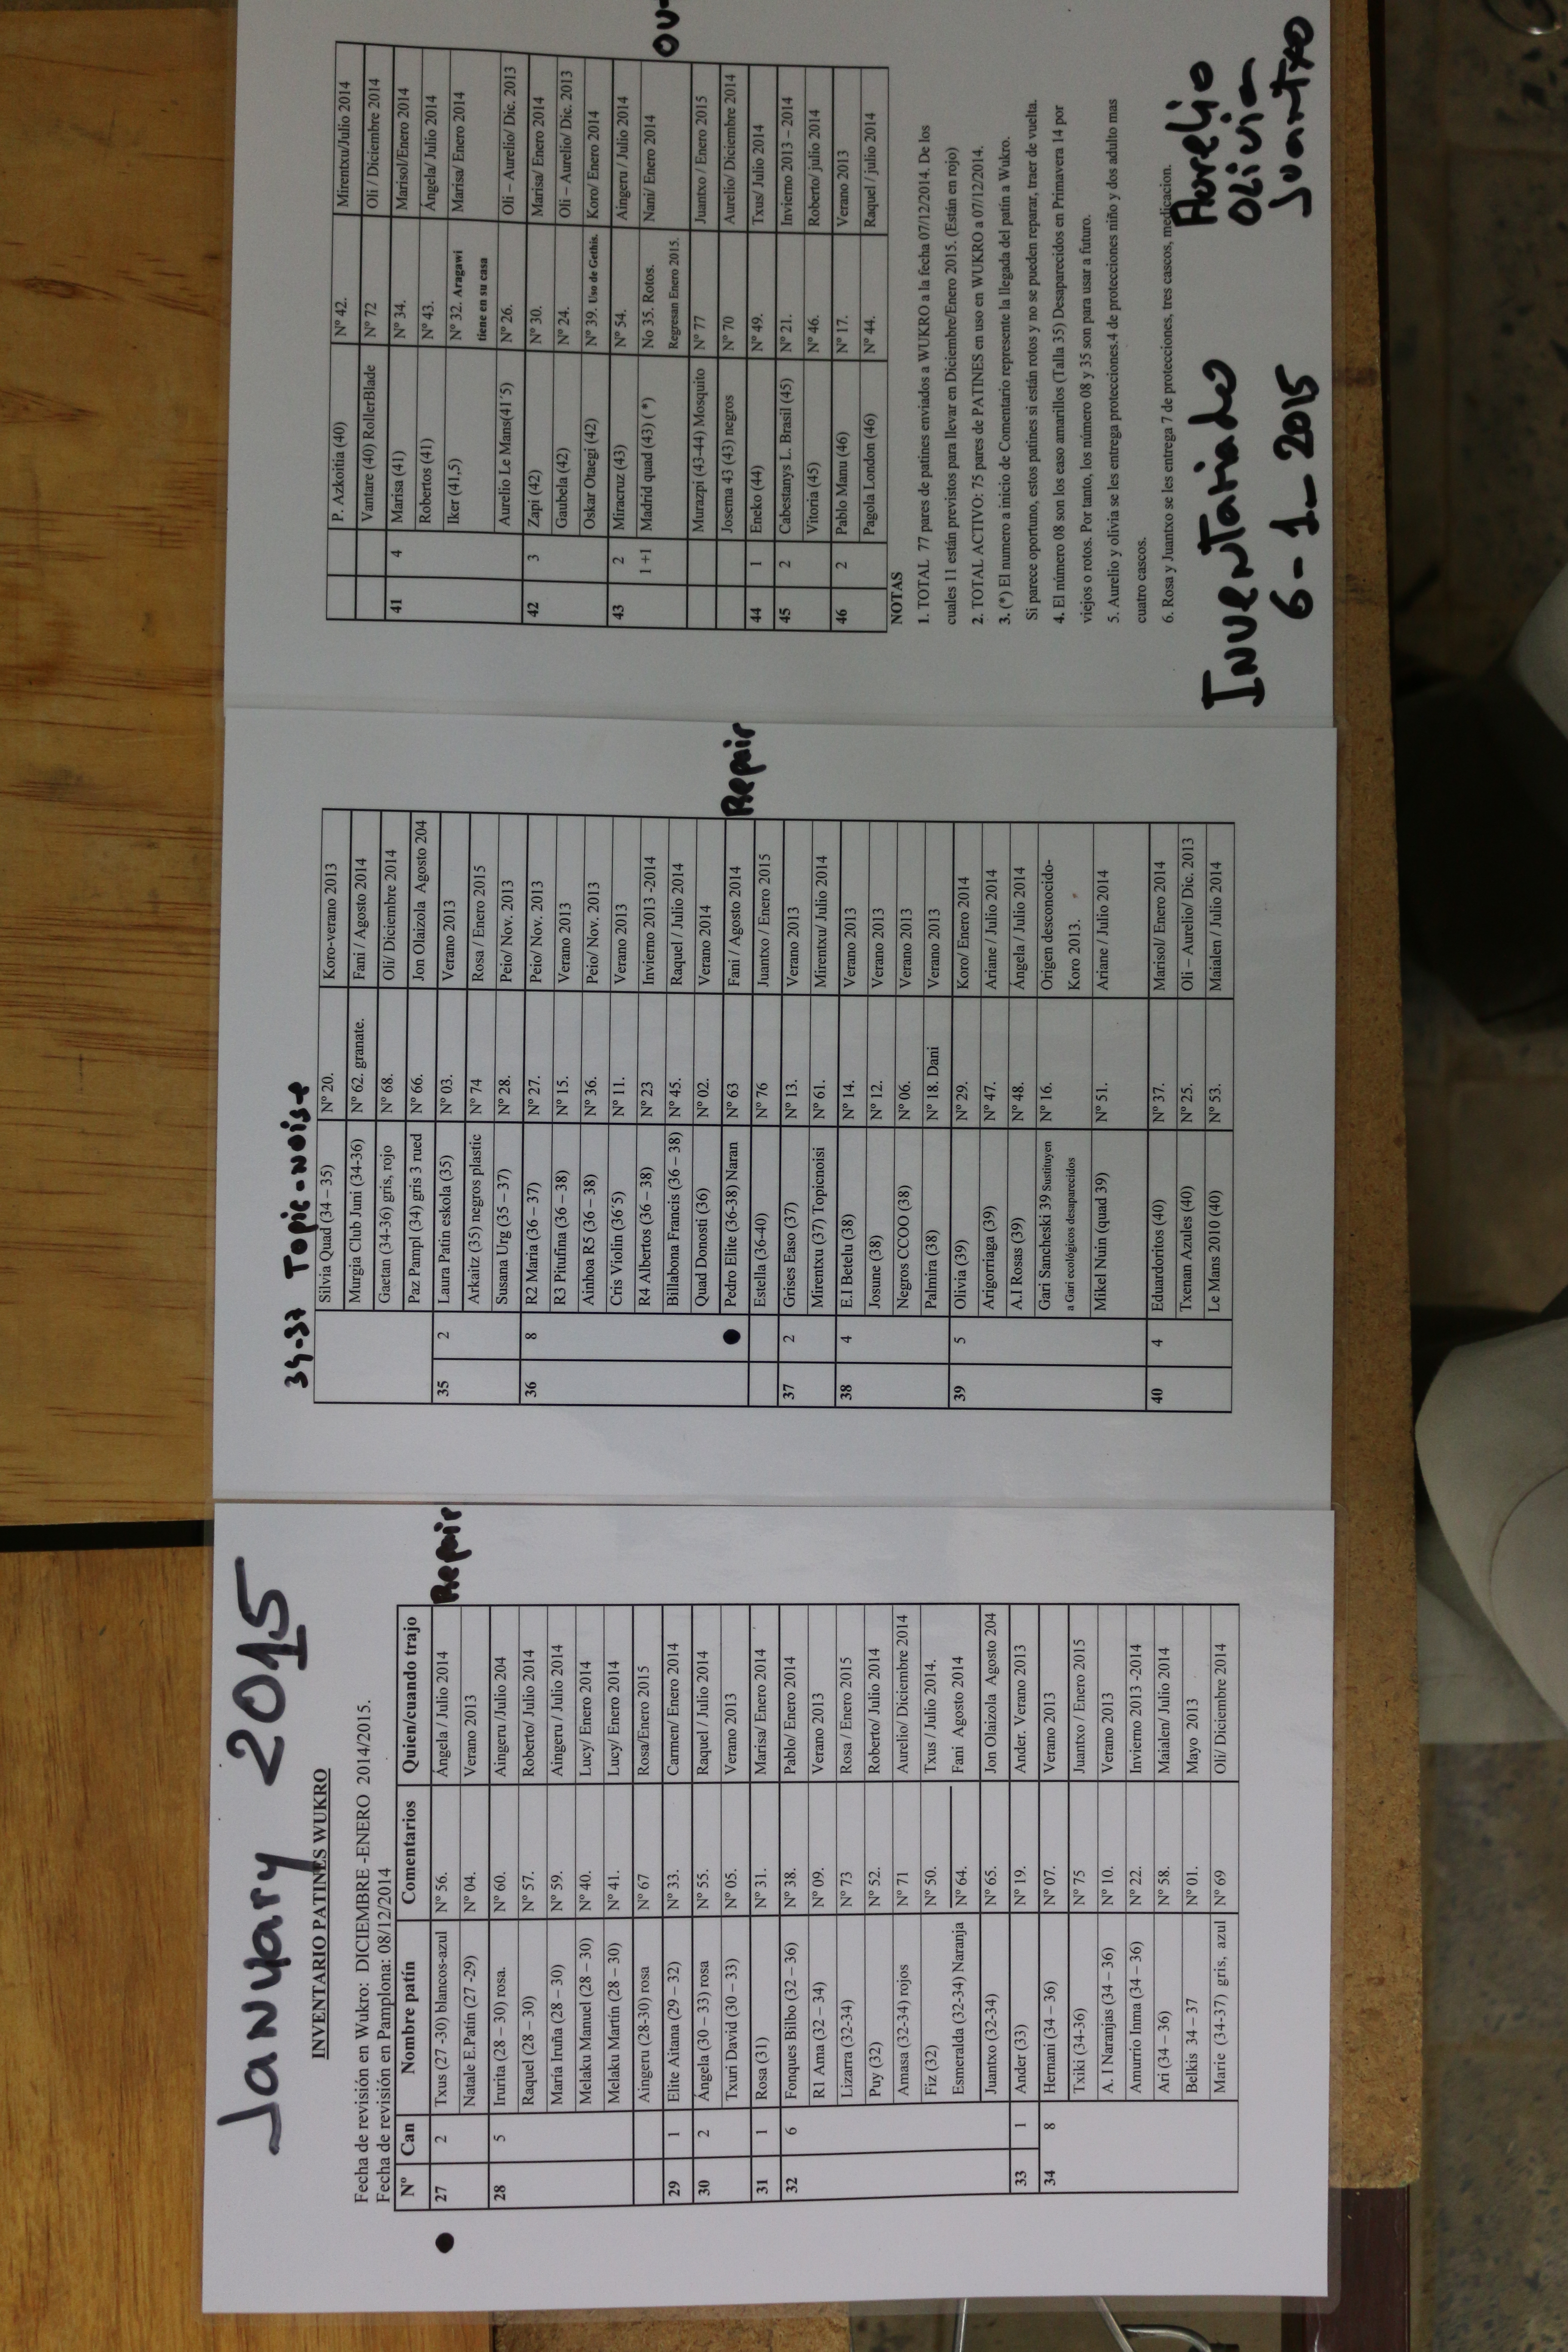 January 2015
INVENTARIO PATINES WUKRO
Fecha de revisión en Wukro: DICIEMBRE -ENERO 2014/2015.
Fecha de revisión en Pamplona: 08/12/2014
Nº Can Nombre patín Comentarios Quien/cuando trajo
27 2 Txus (27 -30) blancos-azul Nº 56. Ángela / Julio 2014 Repair
Natale E.Patín (27 -29) Nº 04. Verano 2013
28 5 Irurita (28 – 30) rosa. Nº 60. Aingeru /Julio 204
Raquel (28 – 30) Nº 57. Roberto/ Julio 2014
María Iruña (28 – 30) Nº 59. Aingeru / Julio 2014
Melaku Manuel (28 – 30) Nº 40. Lucy/ Enero 2014
Melaku Martín (28 – 30) Nº 41. Lucy/ Enero 2014
Aingeru (28-30) rosa Nº 67 Rosa/Enero 2015
29 1 Elite Aitana (29 – 32) Nº 33. Carmen/ Enero 2014
30 2 Ángela (30 – 33) rosa Nº 55. Raquel / Julio 2014
Txuri David (30 – 33) Nº 05. Verano 2013
31 1 Rosa (31) Nº 31. Marisa/ Enero 2014
32 6 Fonques Bilbo (32 – 36) Nº 38. Pablo/ Enero 2014
R1 Ama (32 – 34) Nº 09. Verano 2013
Lizarra (32-34) Nº 73 Rosa / Enero 2015
Puy (32) Nº 52. Roberto/ Julio 2014
Amasa (32-34) rojos Nº 71 Aurelio/ Diciembre 2014
Fiz (32) Nº 50. Txus / Julio 2014.
Esmeralda (32-34) Naranja Nº 64. Fani Agosto 2014
Juantxo (32-34) Nº 65. Jon Olaizola Agosto 204
33 1 Ander (33) Nº 19. Ander. Verano 2013
34 8 Hernani (34 – 36) Nº 07. Verano 2013
Txiki (34-36) Nº 75 Juantxo / Enero 2015
A. I Naranjas (34 – 36) Nº 10. Verano 2013
Amurrio Inma (34 – 36) Nº 22. Invierno 2013 -2014
Ari (34 – 36) Nº 58. Maialen/ Julio 2014
Belkis 34 – 37 Nº 01. Mayo 2013
Marie (34-37) gris, azul Nº 69 Oli/ Diciembre 2014
34-37 Topic-noise
Silvia Quad (34 – 35) Nº 20. Koro-verano 2013
Murgia Club Juni (34-36) Nº 62. granate. Fani / Agosto 2014
Gaetan (34-36) gris, rojo Nº 68. Oli/ Diciembre 2014
Paz Pampl (34) gris 3 rued Nº 66. Jon Olaizola Agosto 204
35 2 Laura Patin eskola (35) Nº 03. Verano 2013
Arkaitz (35) negros plastic Nº 74 Rosa / Enero 2015
Susana Urg (35 – 37) Nº 28. Peio/ Nov. 2013
36 8 R2 Maria (36 – 37) Nº 27. Peio/ Nov. 2013
R3 Pitufina (36 – 38) Nº 15. Verano 2013
Ainhoa R5 (36 – 38) Nº 36. Peio/ Nov. 2013
Cris Violin (36´5) Nº 11. Verano 2013
R4 Albertos (36 – 38) Nº 23 Invierno 2013 -2014
Billabona Francis (36 – 38) Nº 45. Raquel / Julio 2014
Quad Donosti (36) Nº 02. Verano 2014
Pedro Elite (36-38) Naran Nº 63 Fani / Agosto 2014 Repair
Estella (36-40) Nº 76 Juantxo / Enero 2015
37 2 Grises Easo (37) Nº 13. Verano 2013
Mirentxu (37) Topicnoisi Nº 61. Mirentxu/ Julio 2014
38 4 E.I Betelu (38) Nº 14. Verano 2013
Josune (38) Nº 12. Verano 2013
Negros CCOO (38) Nº 06. Verano 2013
Palmira (38) Nº 18. Dani Verano 2013
39 5 Olivia (39) Nº 29. Koro/ Enero 2014
Arigorriaga (39) Nº 47. Ariane / Julio 2014
A.I Rosas (39) Nº 48. Ángela / Julio 2014
Gari Sancheski 39 Sustituyen Nº 16. Origen desconocido-
a Gari ecológicos desaparecidos Koro 2013.
Mikel Nuin (quad 39) Nº 51. Ariane / Julio 2014
40 4 Eduardoritos (40) Nº 37. Marisol/ Enero 2014
Txenan Azules (40) Nº 25. Oli – Aurelio/ Dic. 2013
Le Mans 2010 (40) Nº 53. Maialen / Julio 2014
P. Azkoitia (40) Nº 42. Mirentxu/Julio 2014
Vantare (40) RollerBlade Nº 72 Oli / Diciembre 2014
41 4 Marisa (41) Nº 34. Marisol/Enero 2014
Robertos (41) Nº 43. Ángela/ Julio 2014
Iker (41,5) Nº 32. Aragawi Marisa/ Enero 2014
tiene en su casa
Aurelio Le Mans(41´5) Nº 26. Oli – Aurelio/ Dic. 2013
42 3 Zapi (42) Nº 30. Marisa/ Enero 2014
Gaubela (42) Nº 24. Oli – Aurelio/ Dic. 2013
Oskar Otaegi (42) Nº 39. Uso de Gethis. Koro/ Enero 2014
43 2 Miracruz (43) Nº 54. Aingeru / Julio 2014
1 +1 Madrid quad (43) (*) No 35. Rotos. Nani/ Enero 2014 OU-
Regresan Enero 2015.
Murazpi (43-44) Mosquito Nº 77 Juantxo / Enero 2015
Josema 43 (43) negros Nº 70 Aurelio/ Diciembre 2014
44 1 Eneko (44) Nº 49. Txus/ Julio 2014
45 2 Cabestanys L. Brasil (45) Nº 21. Invierno 2013 – 2014
Vitoria (45) Nº 46. Roberto/ julio 2014
46 2 Pablo Manu (46) Nº 17. Verano 2013
Pagola London (46) Nº 44. Raquel / julio 2014
NOTAS
1. TOTAL 77 pares de patines enviados a WUKRO a la fecha 07/12/2014. De los
cuales 11 están previstos para llevar en Diciembre/Enero 2015. (Están en rojo)
2. TOTAL ACTIVO: 75 pares de PATINES en uso en WUKRO a 07/12/2014.
3. (*) El numero a inicio de Comentario represente la llegada del patín a Wukro.
Si parece oportuno, estos patines si están rotos y no se pueden reparar, traer de vuelta.
4. El número 08 son los easo amarillos (Talla 35) Desaparecidos en Primavera 14 por
viejos o rotos. Por tanto, los número 08 y 35 son para usar a futuro.
5. Aurelio y olivia se les entrega protecciones.4 de protecciones niño y dos adulto mas
cuatro cascos.
6. Rosa y Juantxo se les entrega 7 de protecciones, tres cascos, medicacion.
Inventariado Aurelio
6-1-2015 Olivia
Juantxo